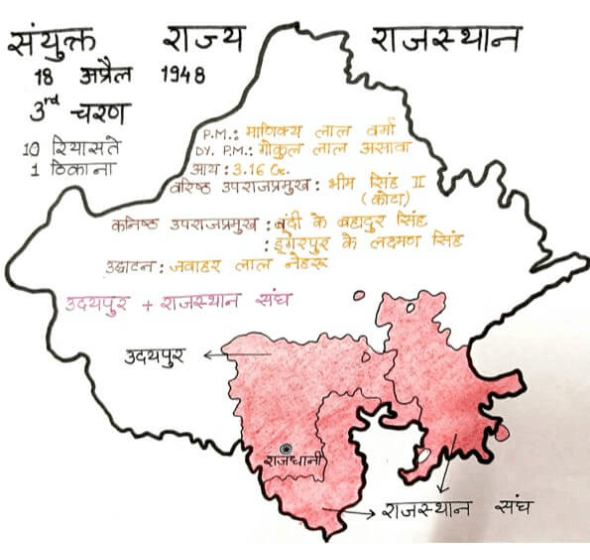 संयुक्त राज्य राजस्थान
18 अप्रैल 1948
3rd चरण
10 रियासते
1 ठिकाना
P.M.: माणिक्य लाल वर्मा
DY. P.M.: गोकुल लाल असावा
आय : 3.16 Cr.
वरिष्ठ उपराजप्रमुख : भीम सिंह II
(कोटा)
कनिष्ठ उपराजप्रमुख : बूंदी के बहादुर सिंह
: डूंगरपुर के लक्ष्मण सिंह
उद्घाटन : जवाहर लाल नेहरू
उदयपुर + राजस्थान संघ
उदयपुर
राजधानी
राजस्थान संघ